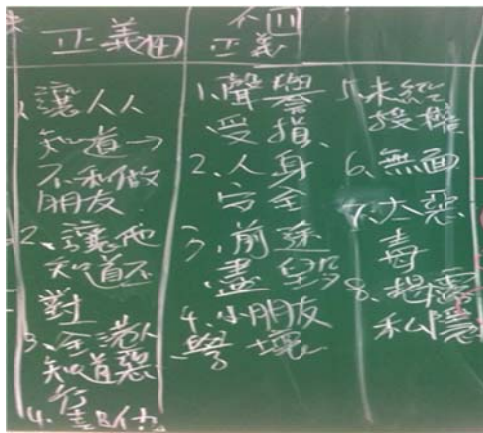 正義四
不
正義四
1.讓人人
知道→
不和做
朋友
2.讓他
知道不
對
3.全港人
知道惡
行
4.
1.聲譽
受損
2.人身
安全
3.前途
盡毀
4.小朋友
學壞
5.未經
授權
6.無面
7.太惡
毒
8.揭露
私隱